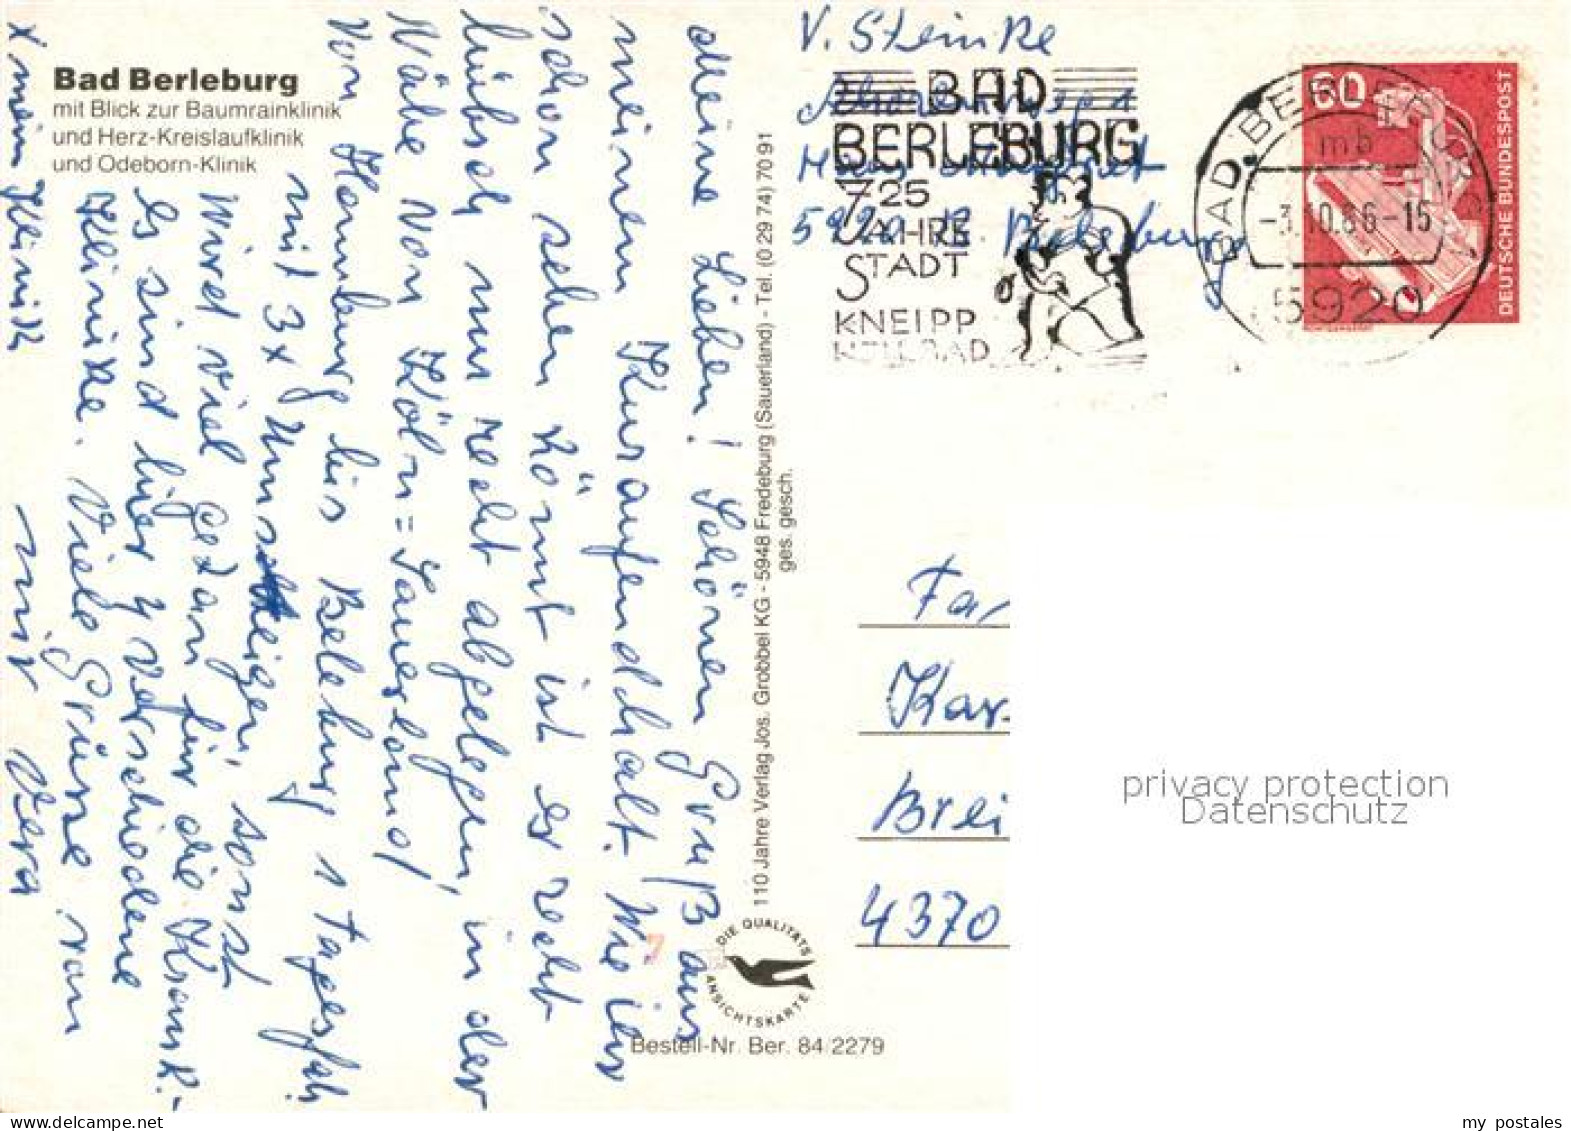 Bad Berleburg
mit Blick zur Baumrainklinik
und Herz-Kreislaufklinik
und Odeborn-Klinik
Meine Lieben! Schönen Gruß aus
meinem Kuraufendhalt. Wie ihr
schon sehen könnt ist es recht
hübsch nur recht abgelegen, in der
Nähe von Köln = Sauerland/
von Hamburg bis Beleburg 1 Tagesfah
mit 3x Umsteigen, sonst
wird viel getan für die Krank-
Es sind hier 4 verschiedene
Klinike. Viele Grüsse von
x mein Klinik
mir Vera
110 Jahre Verlag Jos. Grobbel KG - 5948 Fredeburg (Sauerland) - Tel. (0 29 74) 70 91
ges. gesch.
DIE QUALITÄTS
ANSICHTSKARTE
Bestell-Nr. Ber. 84/2279
V. Steinke
592 B. Beleburg
BAD
BERLEBURG
725
JAHRE
STADT
KNEIPP
HEILBAD
BAD BERLEBURG 1
mb
-3.10.86-15
5920
60
DEUTSCHE BUNDESPOST
Fa
Kar
Brei
4370
privacy protection
Datenschutz
www.delcampe.net
my_postales